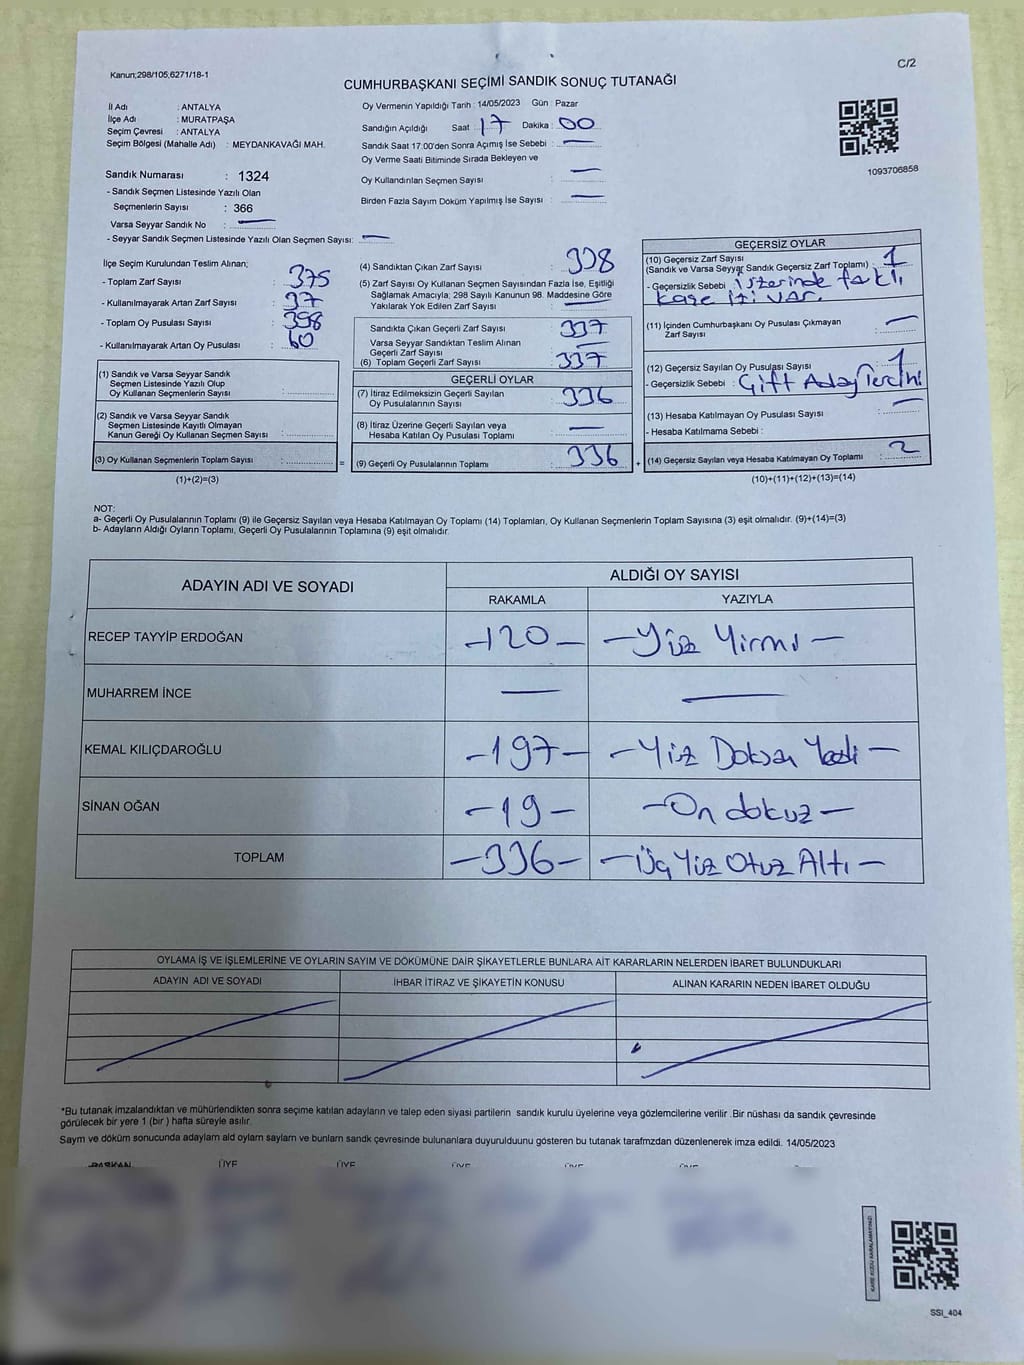 Kanun;298/105;6271/18-1
C/2
CUMHURBAŞKANI SEÇİMİ SANDIK SONUÇ TUTANAĞI
İl Adı : ANTALYA
İlçe Adı : MURATPAŞA
Seçim Çevresi : ANTALYA
Seçim Bölgesi (Mahalle Adı) : MEYDANKAVAĞI MAH.
Sandık Numarası : 1324
- Sandık Seçmen Listesinde Yazılı Olan
Seçmenlerin Sayısı : 366
Varsa Seyyar Sandık No : —
- Seyyar Sandık Seçmen Listesinde Yazılı Olan Seçmen Sayısı: —
Oy Vermenin Yapıldığı Tarih : 14/05/2023 Gün : Pazar
Sandığın Açıldığı Saat : 17 Dakika : 00
Sandık Saat 17.00'den Sonra Açımış İse Sebebi : —
Oy Verme Saati Bitiminde Sırada Bekleyen ve
Oy Kullandırılan Seçmen Sayısı : —
Birden Fazla Sayım Döküm Yapılmış İse Sayısı : —
1093706858
İlçe Seçim Kurulundan Teslim Alınan;
- Toplam Zarf Sayısı : 375
- Kullanılmayarak Artan Zarf Sayısı : 37
- Toplam Oy Pusulası Sayısı : 398
- Kullanılmayarak Artan Oy Pusulası : 60
(1) Sandık ve Varsa Seyyar Sandık
Seçmen Listesinde Yazılı Olup
Oy Kullanan Seçmenlerin Sayısı :
(2) Sandık ve Varsa Seyyar Sandık
Seçmen Listesinde Kayıtlı Olmayan
Kanun Gereği Oy Kullanan Seçmen Sayısı :
(3) Oy Kullanan Seçmenlerin Toplam Sayısı :
(1)+(2)=(3)
=
(4) Sandıktan Çıkan Zarf Sayısı : 338
(5) Zarf Sayısı Oy Kullanan Seçmen Sayısından Fazla İse, Eşitliği
Sağlamak Amacıyla; 298 Sayılı Kanunun 98. Maddesine Göre
Yakılarak Yok Edilen Zarf Sayısı : —
Sandıkta Çıkan Geçerli Zarf Sayısı : 337
Varsa Seyyar Sandıktan Teslim Alınan
Geçerli Zarf Sayısı : —
(6) Toplam Geçerli Zarf Sayısı : 337
GEÇERLİ OYLAR
(7) İtiraz Edilmeksizin Geçerli Sayılan
Oy Pusulalarının Sayısı : 336
(8) İtiraz Üzerine Geçerli Sayılan veya
Hesaba Katılan Oy Pusulası Toplamı : —
(9) Geçerli Oy Pusulalarının Toplamı : 336
+
GEÇERSİZ OYLAR
(10) Geçersiz Zarf Sayısı
(Sandık ve Varsa Seyyar Sandık Geçersiz Zarf Toplamı) : 1
- Geçersizlik Sebebi : üzerinde farklı
kaşe izi var.
(11) İçinden Cumhurbaşkanı Oy Pusulası Çıkmayan
Zarf Sayısı : —
(12) Geçersiz Sayılan Oy Pusulası Sayısı : 1
- Geçersizlik Sebebi : Çift Aday Tercihi
(13) Hesaba Katılmayan Oy Pusulası Sayısı : —
- Hesaba Katılmama Sebebi :
(14) Geçersiz Sayılan veya Hesaba Katılmayan Oy Toplamı : 2
(10)+(11)+(12)+(13)=(14)
NOT:
a- Geçerli Oy Pusulalarının Toplamı (9) ile Geçersiz Sayılan veya Hesaba Katılmayan Oy Toplamı (14) Toplamları, Oy Kullanan Seçmenlerin Toplam Sayısına (3) eşit olmalıdır. (9)+(14)=(3)
b- Adayların Aldığı Oyların Toplamı, Geçerli Oy Pusulalarının Toplamına (9) eşit olmalıdır.
ADAYIN ADI VE SOYADI
ALDIĞI OY SAYISI
RAKAMLA
YAZIYLA
RECEP TAYYİP ERDOĞAN -120- -Yüz Yirmi-
MUHARREM İNCE — —
KEMAL KILIÇDAROĞLU -197- -Yüz Doksan Yedi-
SİNAN OĞAN -19- -On dokuz-
TOPLAM -336- -Üç Yüz Otuz Altı-
OYLAMA İŞ VE İŞLEMLERİNE VE OYLARIN SAYIM VE DÖKÜMÜNE DAİR ŞİKAYETLERLE BUNLARA AİT KARARLARIN NELERDEN İBARET BULUNDUKLARI
ADAYIN ADI VE SOYADI
İHBAR İTİRAZ VE ŞİKAYETİN KONUSU
ALINAN KARARIN NEDEN İBARET OLDUĞU
*Bu tutanak imzalandıktan ve mühürlendikten sonra seçime katılan adayların ve talep eden siyasi partilerin sandık kurulu üyelerine veya gözlemcilerine verilir .Bir nüshası da sandık çevresinde
görülecek bir yere 1 (bir ) hafta süreyle asılır.
Saym ve döküm sonucunda adaylam ald oylarn saylarn ve bunlarn sandk çevresinde bulunanlara duyurulduunu gösteren bu tutanak tarafmzdan düzenlenerek imza edildi. 14/05/2023
BAŞKAN ÜYE ÜYE ÜYE ÜYE ÜYE
KARE KODU KARALAMAYINIZ!
SSI_404